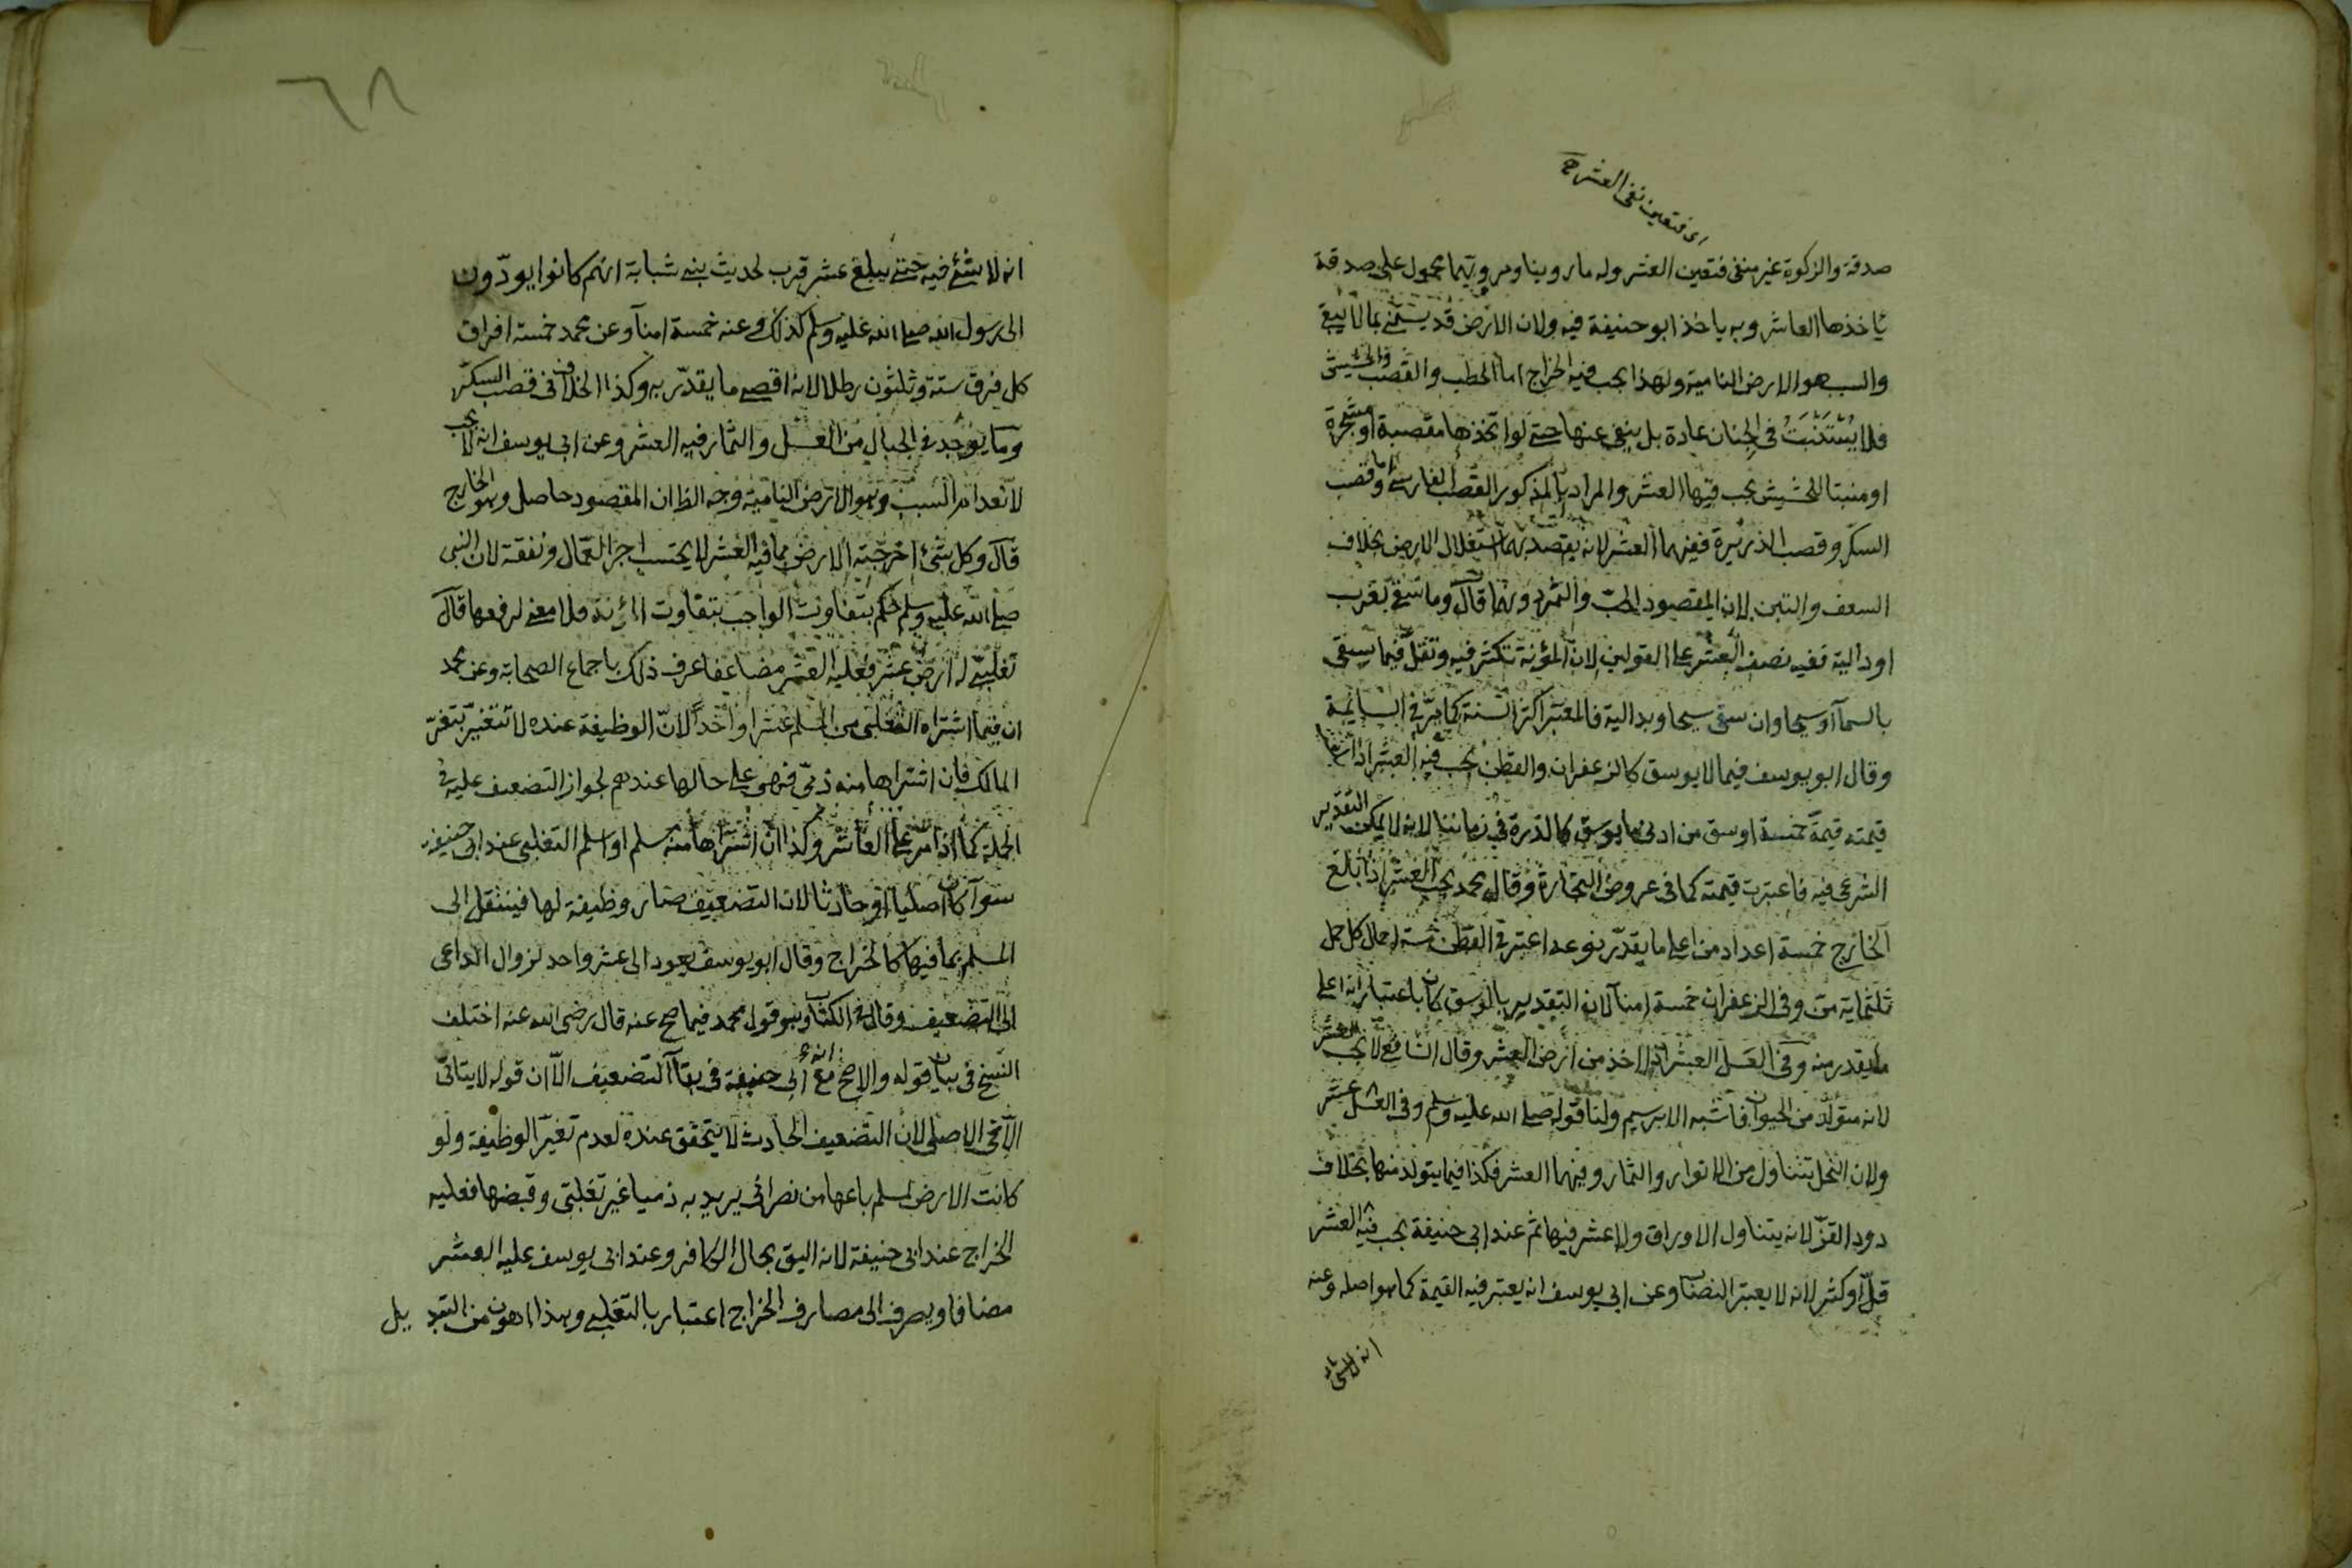 اى فتعين نفى العشر
صدقة والزكوة غير منفى فتعين العشر وله ما روينا ومرويهما محمول على صدقة
يأخذها العاشر وبه ياخذ ابو حنيفة فيه ولان الارض قد يستنمى بما لا يبقى
والسبب هو الارض النامية ولهذا يجب فيه الخراج اما الحطب والقصب والحشيش
فلا يُسْتَنْبَتُ فى الجنان عادة بل ينقى عنها حتى لو اتخذها مقصبة او مشجرة
او منبتا للحشيش يجب فيها العشر والمراد بالمذكور القصب الفارسى واما قصب
السكر وقصب الذريرة ففيهما العشر لانه يقصد بهما استغلال الارض بخلاف
السعف والتبن لان المقصود الحبّ والتمر دونهما قال وما سقى بغرب
او دالية ففيه نصف العشر على القولين لان المؤنة تكثر فيه وتقلّ فيما يسقى
بالسمآ او سيحا وان سقى سيحا وبدالية فالمعتبر اكثر السنة كما مرّ فى السايمة
وقال ابو يوسف فيما لا يوسق كالزعفران والقطن يجب فيه العشر اذا بلغ
قيمته قيمة خمسة اوسق من ادنى ما يوسق كالذرة فى زماننا لانه لا يمكن التقدير
الشرعى فيه فاعتبرت قيمته كما فى عروض التجارة وقال محمد يجب العشر اذا بلغ
الخارج خمسة اعداد من اعلى ما يقدّر به نوعه اعتبر فى القطن خمسة احمال كل حمل
ثلثماية منّ وفى الزعفران خمسة امنآ لان التقدير بالوسق كان باعتبار انه اعلى
ما يقدر منه وفى العسل العشر اذا اخذ من ارض العشر وقال الشافعى لا يجب العشر
لانه متولّد من الحيوان فاشبه الابريسم ولنا قوله صلى الله عليه وسلم وفى العسل عشر
ولان النحل يتناول من الانوار والثمار وفيهما العشر فكذا فيما يتولد منها بخلاف
دود القزّ لانه يتناول الاوراق ولا عشر فيها ثم عند ابى حنيفة يجب فيه العشر
قلّ او كثر لانه لا يعتبر النصاب وعن ابى يوسف انه يعتبر فيه القيمة كما هو اصله وعنه
انه لا شى
٦٨
انه لا شئ فيه حتى يبلغ عشر قرب لحديث بنى شبابة انهم كانوا يودّون
الى رسول الله صلى الله عليه وسلم كذلك وعنه خمسة امنآ وعن محمد خمسة افراق
كل فرق ستة وثلثون رطلا لانه اقصى ما يقدّر به وكذا الخلاف فى قصب السكر
وما يوجد فى الجبال من العسل والثمار فيه العشر وعن ابى يوسف انه لا يجب
لانعدام السبب وهو الارض النامية وجه الظ ان المقصود حاصل وهو الخارج
قال وكل شئ اخرجته الارض مما فيه العشر لا يحتسب اجر العمّال ونفقة لان النبى
صلى الله عليه وسلم حكم بتفاوت الواجب بتفاوت المؤنة فلا معنى لرفعها قال
تغلبىّ له ارض عشر فعليه العشر مضاعفا عرف ذلك باجماع الصحابة وعن محمد
ان فيما اشتراه التغلبى من المسلم عشرا واحداً لانّ الوظيفة عنده لا تتغيّر بتغيّر
المالك فان اشتراها منه ذمىّ فهى على حالها عندهم لجواز التضعيف عليه فى
الجملة كما اذا مرّ على العاشر وكذا ان اشتراها منه مسلم او اسلم التغلبى عند ابى حنيفة
سوآ كان اصليا او حادثا لان التضعيف صار وظيفة لها فينتقل الى
المسلم بما فيها كالخراج وقال ابو يوسف يعود الى عشر واحد لزوال الداعى
الى التضعيف وقال فى الكتاب وهو قول محمد فيما صح عنه قال رضى الله عنه اختلف
النسخ فى بيان قوله والاصح انه مع ابى حنيفة فى بقآ التضعيف الاّ ان قوله لا يتاتىّ
الاّ فى الاصلى لان التضعيف الحادث لا يتحقق عنده لعدم تغيّر الوظيفة ولو
كانت الارض لمسلم باعها من نصرانى يريد به ذميا غير تغلبىّ وقبضها فعليه
الخراج عند ابى حنيفة لانه اليق بحال الكافر وعند ابى يوسف عليه العشر
مضافا ويصرف الى مصارف الخراج اعتبارا بالتغلبى وهذا اهون من التبديل